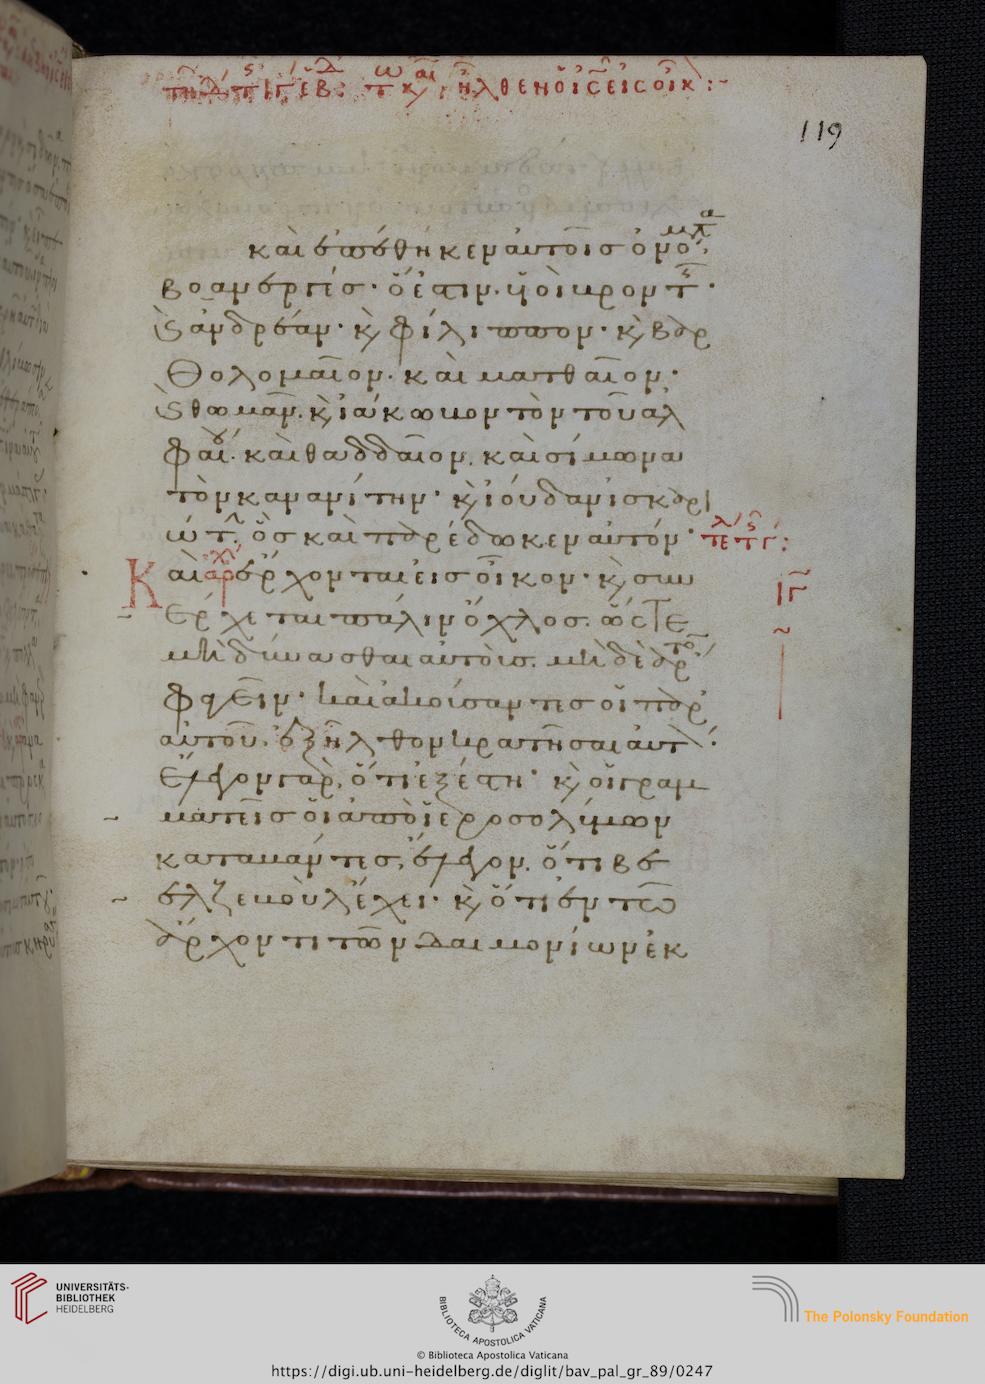 119
καὶ ἐπέθηκεν αὐτοῖς ὀνόματα
βοανεργές· ὅ ἐστιν. υἱοὶ βροντῆς·
καὶ ἀνδρέαν· κ φίλιππον· κ βαρ
θολομαῖον. καὶ ματθαῖον·
καὶ θωμᾶν. κ ἰάκωβον τὸν τοῦ ἀλ
φαίου. καὶ θαδδαῖον. καὶ σίμωνα
τὸν κανανίτην· κ ἰούδαν ἰσκαρι
ώτην. ὃς καὶ παρέδωκεν αὐτόν·
Καὶ ἔρχονται εἰς οἶκον· κ συν
έρχεται πάλιν ὄχλος. ὥστε
μὴ δύνασθαι αὐτοὺς. μὴ δὲ ἄρτον
φαγεῖν· καὶ ἀκούσαντες οἱ παρ
αὐτοῦ. ἐξῆλθον κρατῆσαι αὐτόν·
ἔλεγον γὰρ, ὅτι ἐξέστη· κ οἱ γραμ
ματεῖς οἱ ἀπὸ ἱεροσολύμων
καταβάντες, ἔλεγον. ὅτι βε
ελζεβοὺλ ἔχει· κ ὅτι ἐν τῶ
ἄρχοντι τῶν δαιμονίων ἐκ
UNIVERSITÄTS-
BIBLIOTHEK
HEIDELBERG
BIBLIOTECA APOSTOLICA VATICANA
The Polonsky Foundation
© Biblioteca Apostolica Vaticana
https://digi.ub.uni-heidelberg.de/diglit/bav_pal_gr_89/0247